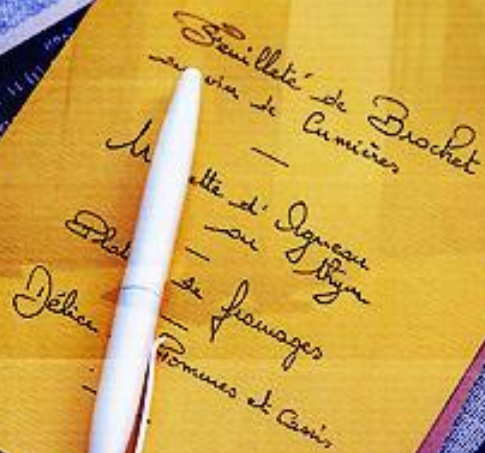 Feuilleté de Brochet
au vin de Cumières
d'Agneau
au thym
de fromages
Délice Pommes et Cassis